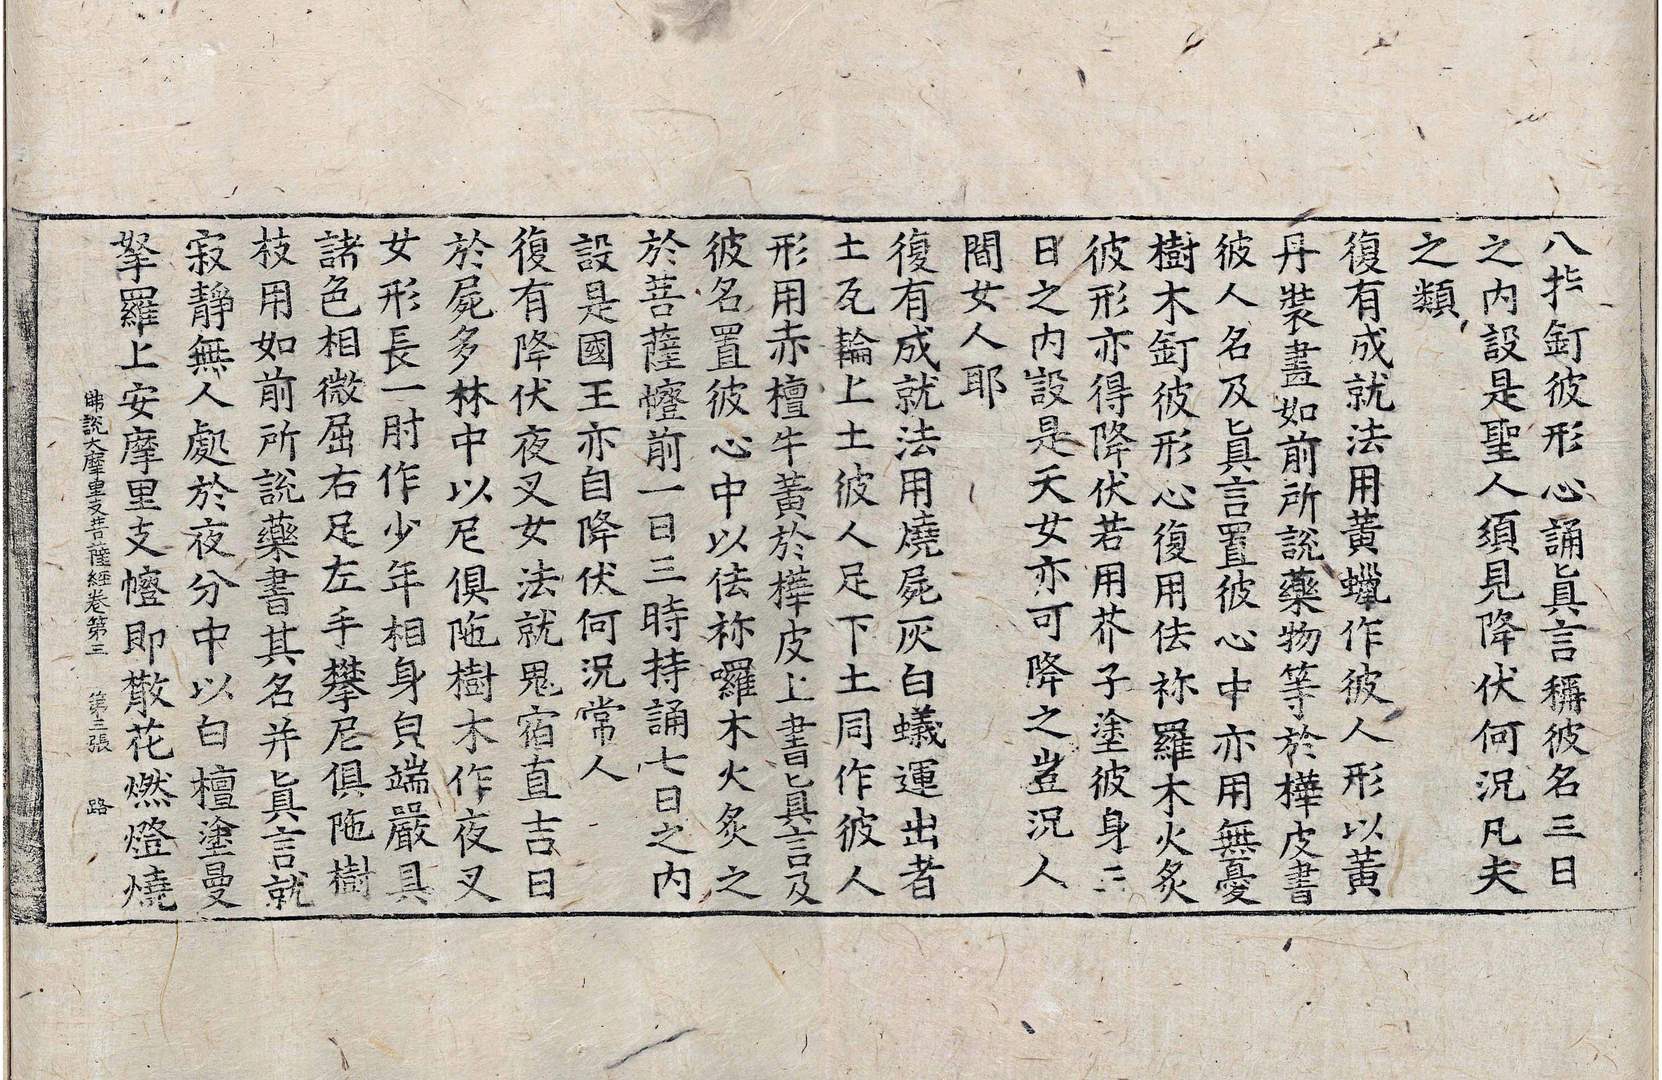 八指釘彼形心誦真言稱彼名三日
之内設是聖人須見降伏何況凡夫
之類
復有成就法用黃蠟作彼人形以黃
丹裝畫如前所說藥物等於樺皮書
彼人名及真言置彼心中亦用無憂
樹木釘彼形心復用佉祢羅木火炙
彼形亦得降伏若用芥子塗彼身三
日之内設是天女亦可降之豈況人
間女人耶
復有成就法用燒屍灰白蟻運出者
土瓦輪上土彼人足下土同作彼人
形用赤檀牛黃於樺皮上書真言及
彼名置彼心中以佉祢囉木火炙之
於菩薩㡧前一日三時持誦七日之内
設是國王亦自降伏何況常人
復有降伏夜叉女法就鬼宿直吉日
於屍多林中以尼俱陁樹木作夜叉
女形長一肘作少年相身皃端嚴具
諸色相微屈右足左手攀尼俱陁樹
枝用如前所說藥書其名并真言就
寂靜無人處於夜分中以白檀塗曼
拏羅上安摩里支㡧即散花燃燈燒
佛說大摩里支菩薩經卷第三 第三張 路